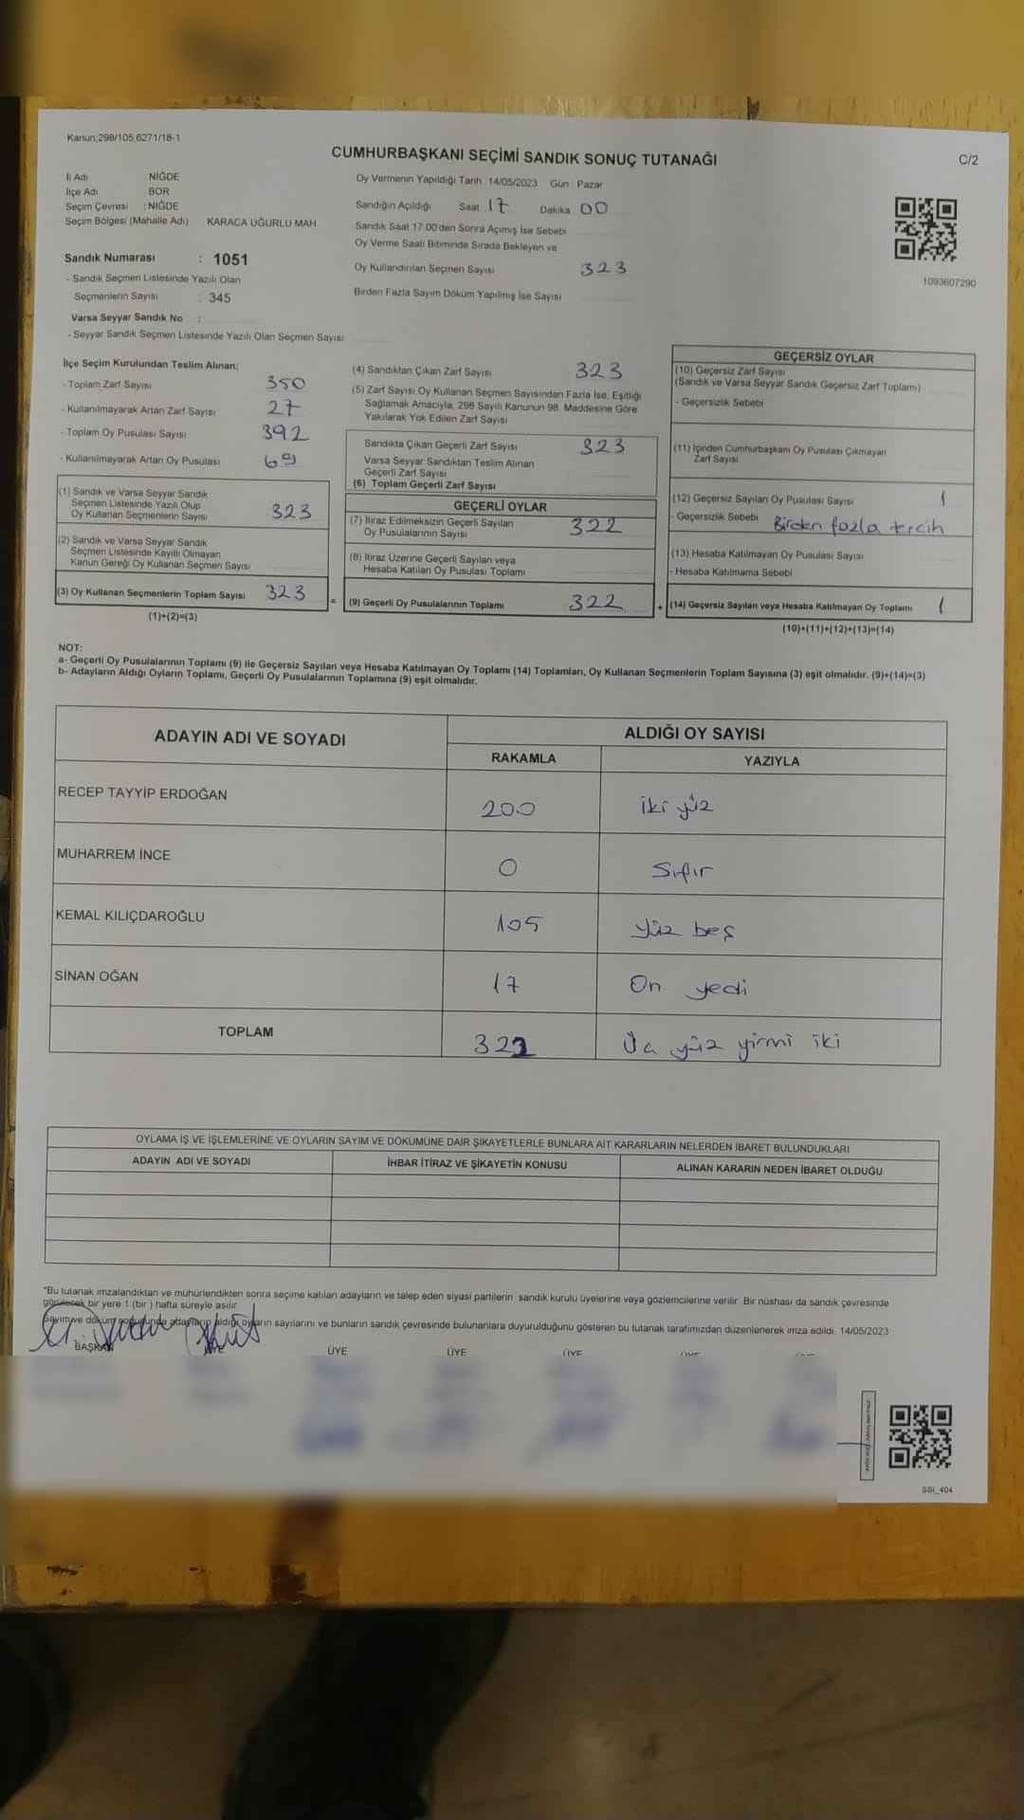 Kanun;298/105,6271/18-1
CUMHURBAŞKANI SEÇİMİ SANDIK SONUÇ TUTANAĞI
C/2
İl Adı NİĞDE
İlçe Adı BOR
Seçim Çevresi : NİĞDE
Seçim Bölgesi (Mahalle Adı) KARACA UĞURLU MAH
Sandık Numarası : 1051
- Sandık Seçmen Listesinde Yazılı Olan
Seçmenlerin Sayısı : 345
Varsa Seyyar Sandık No :
- Seyyar Sandık Seçmen Listesinde Yazılı Olan Seçmen Sayısı
Oy Vermenin Yapıldığı Tarih 14/05/2023 Gün Pazar
Sandığın Açıldığı Saat 17 Dakika 00
Sandık Saat 17:00'den Sonra Açımış İse Sebebi
Oy Verme Saati Bitiminde Sırada Bekleyen ve
Oy Kullandırılan Seçmen Sayısı 323
Birden Fazla Sayım Döküm Yapılmış İse Sayısı
1093607290
İlçe Seçim Kurulundan Teslim Alınan;
- Toplam Zarf Sayısı 350
- Kullanılmayarak Artan Zarf Sayısı 27
- Toplam Oy Pusulası Sayısı 392
- Kullanılmayarak Artan Oy Pusulası 69
(1) Sandık ve Varsa Seyyar Sandık
Seçmen Listesinde Yazılı Olup
Oy Kullanan Seçmenlerin Sayısı 323
(2) Sandık ve Varsa Seyyar Sandık
Seçmen Listesinde Kayıtlı Olmayan
Kanun Gereği Oy Kullanan Seçmen Sayısı
(3) Oy Kullanan Seçmenlerin Toplam Sayısı 323
(1)+(2)=(3)
(4) Sandıktan Çıkan Zarf Sayısı 323
(5) Zarf Sayısı Oy Kullanan Seçmen Sayısından Fazla İse, Eşitliği
Sağlamak Amacıyla, 298 Sayılı Kanunun 98. Maddesine Göre
Yakılarak Yok Edilen Zarf Sayısı
Sandıkta Çıkan Geçerli Zarf Sayısı 323
Varsa Seyyar Sandıktan Teslim Alınan
Geçerli Zarf Sayısı
(6) Toplam Geçerli Zarf Sayısı
GEÇERLİ OYLAR
(7) İtiraz Edilmeksizin Geçerli Sayılan
Oy Pusulalarının Sayısı 322
(8) İtiraz Üzerine Geçerli Sayılan veya
Hesaba Katılan Oy Pusulası Toplamı
= (9) Geçerli Oy Pusulalarının Toplamı 322
GEÇERSİZ OYLAR
(10) Geçersiz Zarf Sayısı
(Sandık ve Varsa Seyyar Sandık Geçersiz Zarf Toplamı)
- Geçersizlik Sebebi
(11) İçinden Cumhurbaşkanı Oy Pusulası Çıkmayan
Zarf Sayısı
(12) Geçersiz Sayılan Oy Pusulası Sayısı 1
- Geçersizlik Sebebi Birden fazla tercih
(13) Hesaba Katılmayan Oy Pusulası Sayısı
- Hesaba Katılmama Sebebi
+ (14) Geçersiz Sayılan veya Hesaba Katılmayan Oy Toplamı 1
(10)+(11)+(12)+(13)=(14)
NOT:
a- Geçerli Oy Pusulalarının Toplamı (9) ile Geçersiz Sayılan veya Hesaba Katılmayan Oy Toplamı (14) Toplamları, Oy Kullanan Seçmenlerin Toplam Sayısına (3) eşit olmalıdır. (9)+(14)=(3)
b- Adayların Aldığı Oyların Toplamı, Geçerli Oy Pusulalarının Toplamına (9) eşit olmalıdır.
ADAYIN ADI VE SOYADI ALDIĞI OY SAYISI
RAKAMLA YAZIYLA
RECEP TAYYİP ERDOĞAN 200 iki yüz
MUHARREM İNCE 0 Sıfır
KEMAL KILIÇDAROĞLU 105 yüz beş
SİNAN OĞAN 17 On yedi
TOPLAM 322 Üç yüz yirmi iki
OYLAMA İŞ VE İŞLEMLERİNE VE OYLARIN SAYIM VE DÖKÜMÜNE DAİR ŞİKAYETLERLE BUNLARA AİT KARARLARIN NELERDEN İBARET BULUNDUKLARI
ADAYIN ADI VE SOYADI İHBAR İTİRAZ VE ŞİKAYETİN KONUSU ALINAN KARARIN NEDEN İBARET OLDUĞU
*Bu tutanak imzalandıktan ve mühürlendikten sonra seçime katılan adayların ve talep eden siyasi partilerin sandık kurulu üyelerine veya gözlemcilerine verilir. Bir nüshası da sandık çevresinde
görülecek bir yere 1 (bir ) hafta süreyle asılır.
Sayım ve döküm sonucunda adayların aldığı oyların sayılarını ve bunların sandık çevresinde bulunanlara duyurulduğunu gösteren bu tutanak tarafımızdan düzenlenerek imza edildi. 14/05/2023
BAŞKAN ÜYE ÜYE ÜYE
SSİ_404